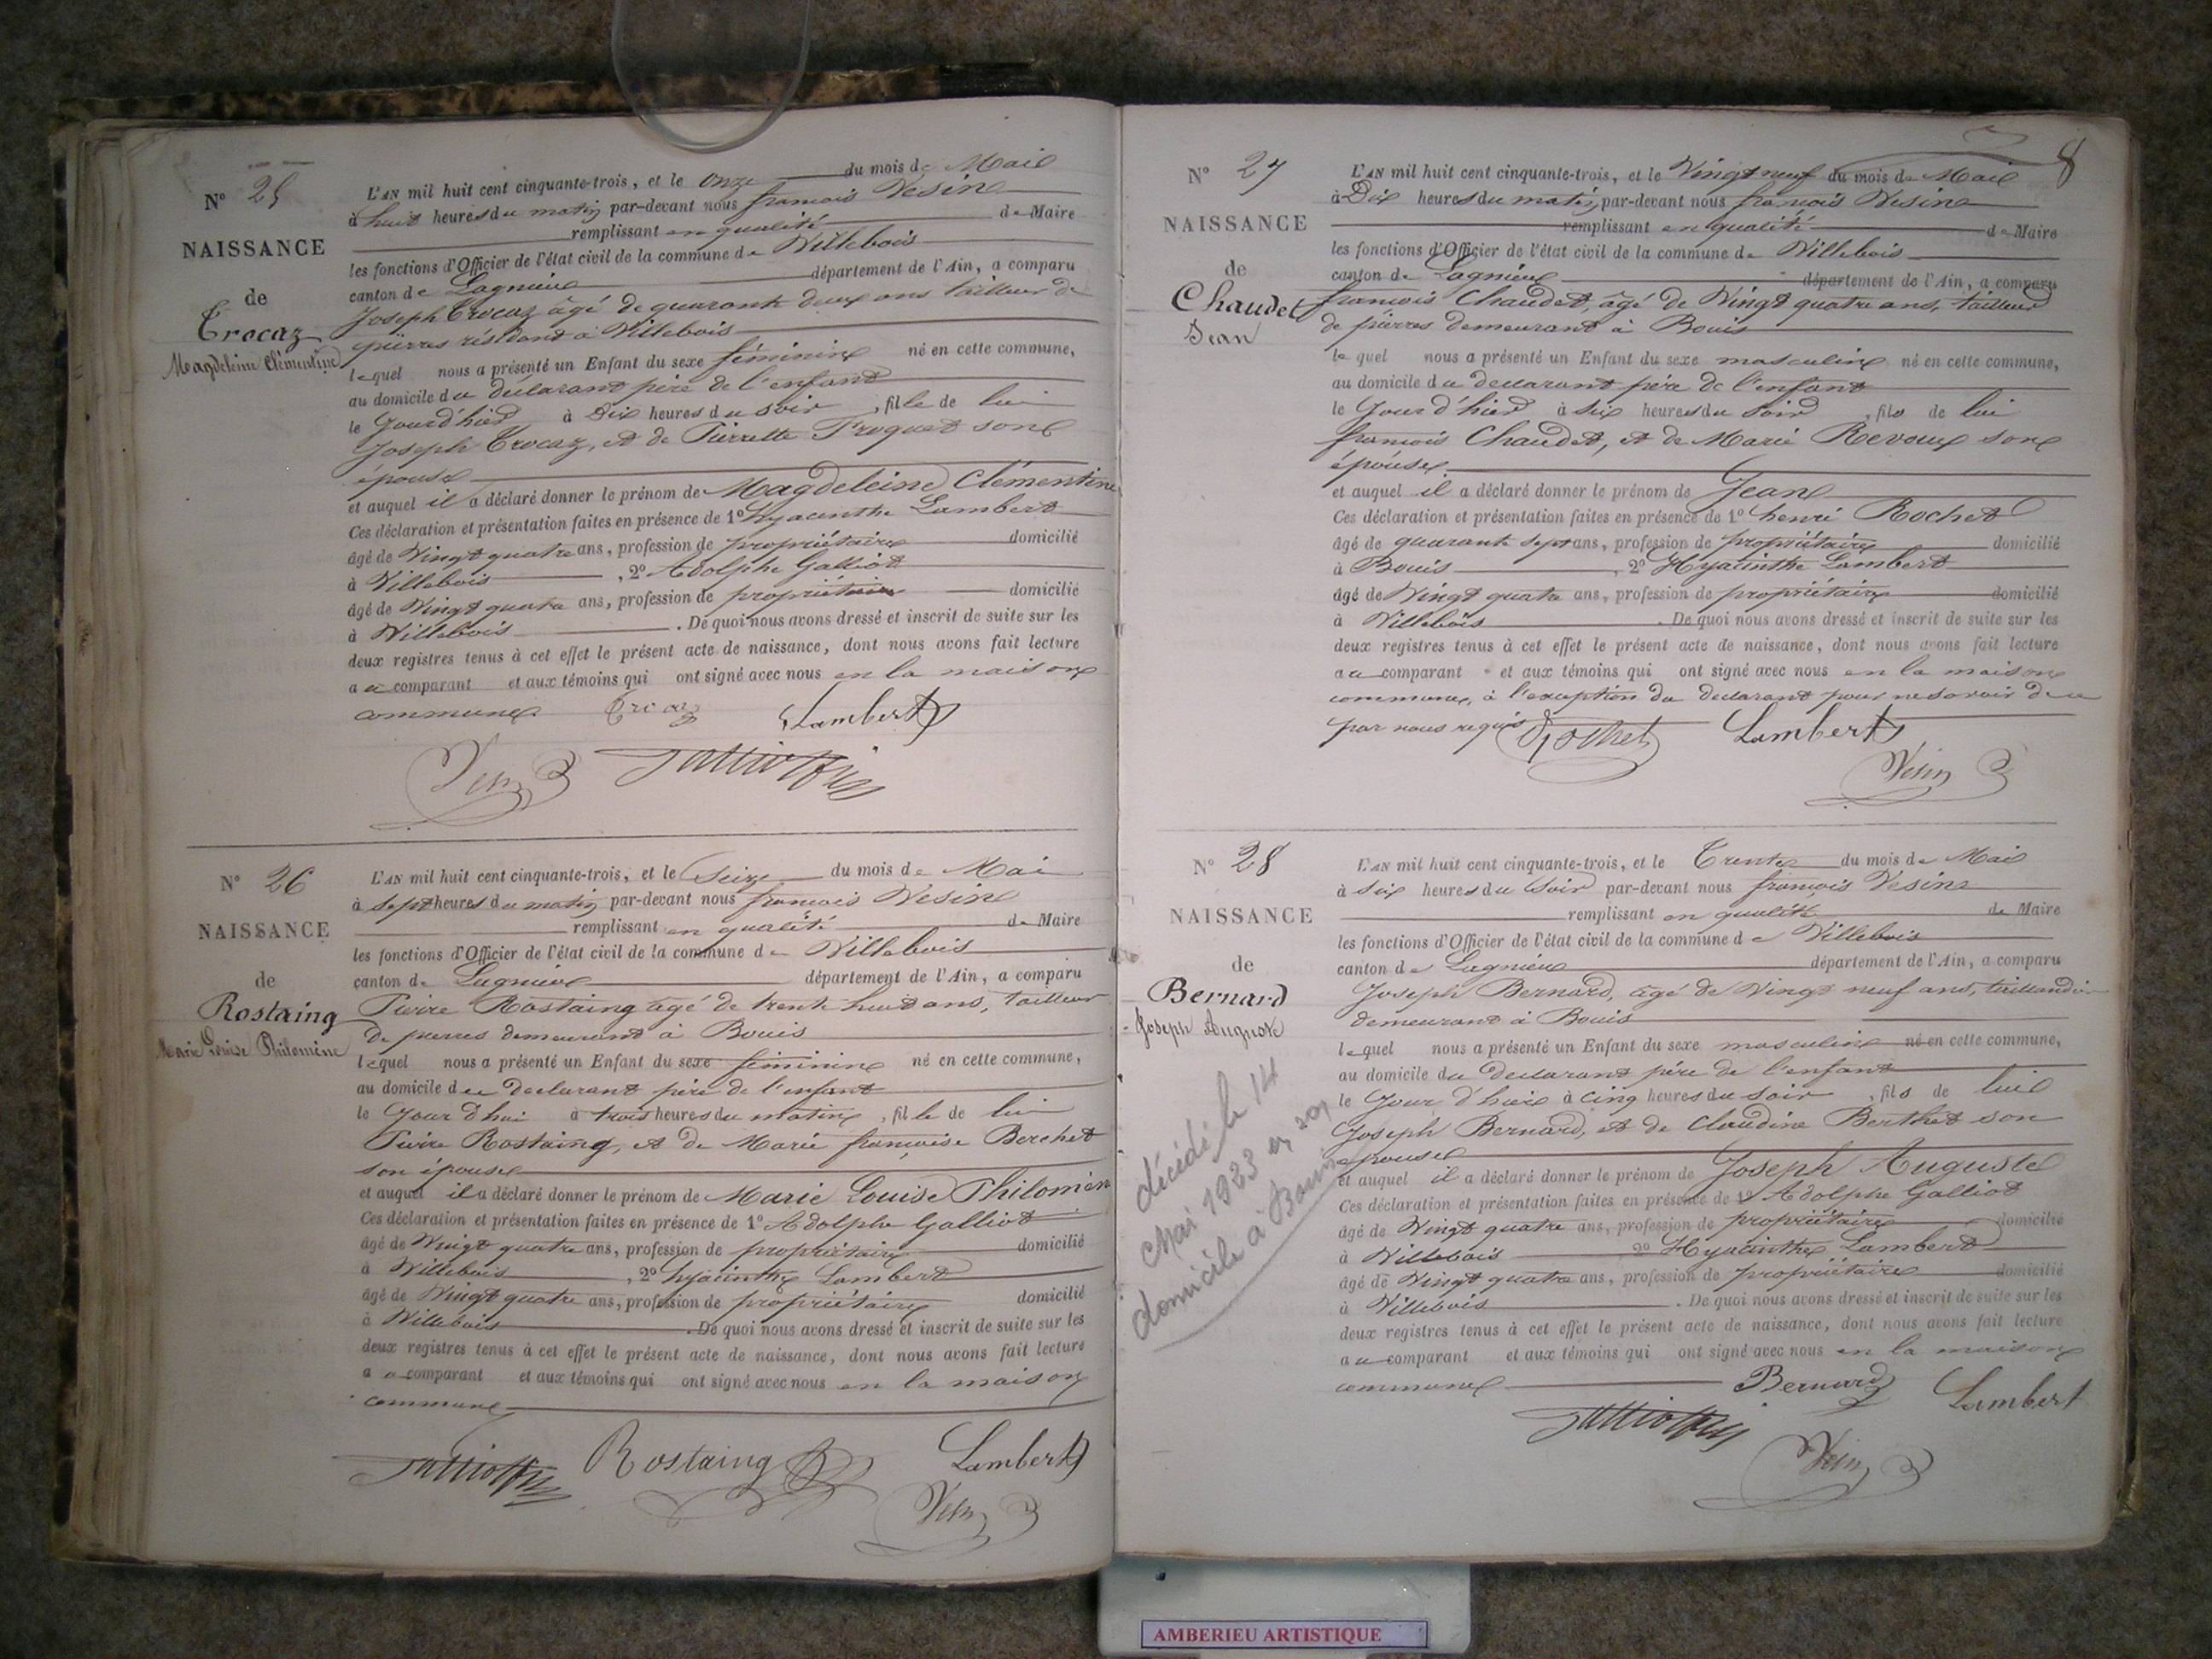 N° 25
NAISSANCE
de
Trocaz
Magdeleine Clémentine
L'AN mil huit cent cinquante-trois, et le onze du mois de Mai
à huit heures du matin par-devant nous françois Vesin
remplissant en qualité de Maire
les fonctions d'Officier de l'état civil de la commune de Villebois
canton de Lagnieu département de l'Ain, a comparu
Joseph Trocaz âgé de quarante deux ans tailleur de
pierres résidant à Villebois
lequel nous a présenté un Enfant du sexe féminin né en cette commune,
au domicile du déclarant père de l'enfant
le Jour d'hier à Dix heures du soir, fille de lui
Joseph Trocaz, et de Pierrette Froquet son
épouse
et auquel il a déclaré donner le prénom de Magdeleine Clémentine
Ces déclaration et présentation faites en présence de 1° hyacinthe Lambert
âgé de Vingt quatre ans, profession de propriétaire domicilié
à Villebois, 2° Adolphe Galliot
âgé de Vingt quatre ans, profession de propriétaire domicilié
à Villebois. De quoi nous avons dressé et inscrit de suite sur les
deux registres tenus à cet effet le présent acte de naissance, dont nous avons fait lecture
au comparant et aux témoins qui ont signé avec nous en la maison
commune. Trocaz Lambert
Vesin Galliot
N° 26
NAISSANCE
de
Rostaing
Marie Louise Philomène
L'AN mil huit cent cinquante-trois, et le Seize du mois de Mai
à sept heures du matin par-devant nous françois Vesin
remplissant en qualité de Maire
les fonctions d'Officier de l'état civil de la commune de Villebois
canton de Lagnieu département de l'Ain, a comparu
Pierre Rostaing âgé de trente huit ans, tailleur
de pierres demeurant à Bouis
lequel nous a présenté un Enfant du sexe féminin né en cette commune,
au domicile du declarant père de l'enfant
le Jour d'hui à trois heures du matin, fille de lui
Pierre Rostaing, et de Marie françoise Berchet
son épouse
et auquel il a déclaré donner le prénom de Marie Louise Philomèn
Ces déclaration et présentation faites en présence de 1° Adolphe Galliot
âgé de Vingt quatre ans, profession de propriétaire domicilié
à Villebois, 2° hyacinthe Lambert
âgé de Vingt quatre ans, profession de propriétaire domicilié
à Villebois. De quoi nous avons dressé et inscrit de suite sur les
deux registres tenus à cet effet le présent acte de naissance, dont nous avons fait lecture
au comparant et aux témoins qui ont signé avec nous en la maison
commune
Galliot Rostaing Lambert
Vesin
8
N° 27
NAISSANCE
de
Chaudet
Jean
L'AN mil huit cent cinquante-trois, et le Vingt neuf du mois de Mai
à Dix heures du matin par-devant nous françois Vesin
remplissant en qualité de Maire
les fonctions d'Officier de l'état civil de la commune de Villebois
canton de Lagnieu département de l'Ain, a comparu
françois Chaudet, âgé de Vingt quatre ans, tailleur
de pierres demeurant à Bouis
lequel nous a présenté un Enfant du sexe masculin né en cette commune,
au domicile du declarant père de l'enfant
le Jour d'hier à six heures du soir, fils de lui
françois Chaudet, et de Marie Revoux son
épouse
et auquel il a déclaré donner le prénom de Jean
Ces déclaration et présentation faites en présence de 1° henri Rochet
âgé de quarante sept ans, profession de propriétaire domicilié
à Bouis, 2° Hyacinthe Lambert
âgé de Vingt quatre ans, profession de propriétaire domicilié
à Villebois. De quoi nous avons dressé et inscrit de suite sur les
deux registres tenus à cet effet le présent acte de naissance, dont nous avons fait lecture
au comparant et aux témoins qui ont signé avec nous en la maison
commune, à l'exception du declarant pour ne savoir de ce
par nous requis Rochet Lambert
Vesin
N° 28
NAISSANCE
de
Bernard
Joseph Auguste
décédé le 14
Mai 1923 en son
domicile à Bouis
L'AN mil huit cent cinquante-trois, et le Trente du mois de Mai
à six heures du soir par-devant nous françois Vesin
remplissant en qualité de Maire
les fonctions d'Officier de l'état civil de la commune de Villebois
canton de Lagnieu département de l'Ain, a comparu
Joseph Bernard, âgé de Vingt neuf ans, taillandier
demeurant à Bouis
lequel nous a présenté un Enfant du sexe masculin né en cette commune,
au domicile du declarant père de l'enfant
le Jour d'hui à cinq heures du soir, fils de lui
Joseph Bernard, et de Claudine Berthet son
épouse
et auquel il a déclaré donner le prénom de Joseph Auguste
Ces déclaration et présentation faites en présence de 1° Adolphe Galliot
âgé de Vingt quatre ans, profession de propriétaire domicilié
à Villebois 2° Hyacinthe Lambert
âgé de Vingt quatre ans, profession de propriétaire domicilié
à Villebois. De quoi nous avons dressé et inscrit de suite sur les
deux registres tenus à cet effet le présent acte de naissance, dont nous avons fait lecture
au comparant et aux témoins qui ont signé avec nous en la maison
commune Bernard Lambert
Galliot
Vesin
AMBERIEU ARTISTIQUE